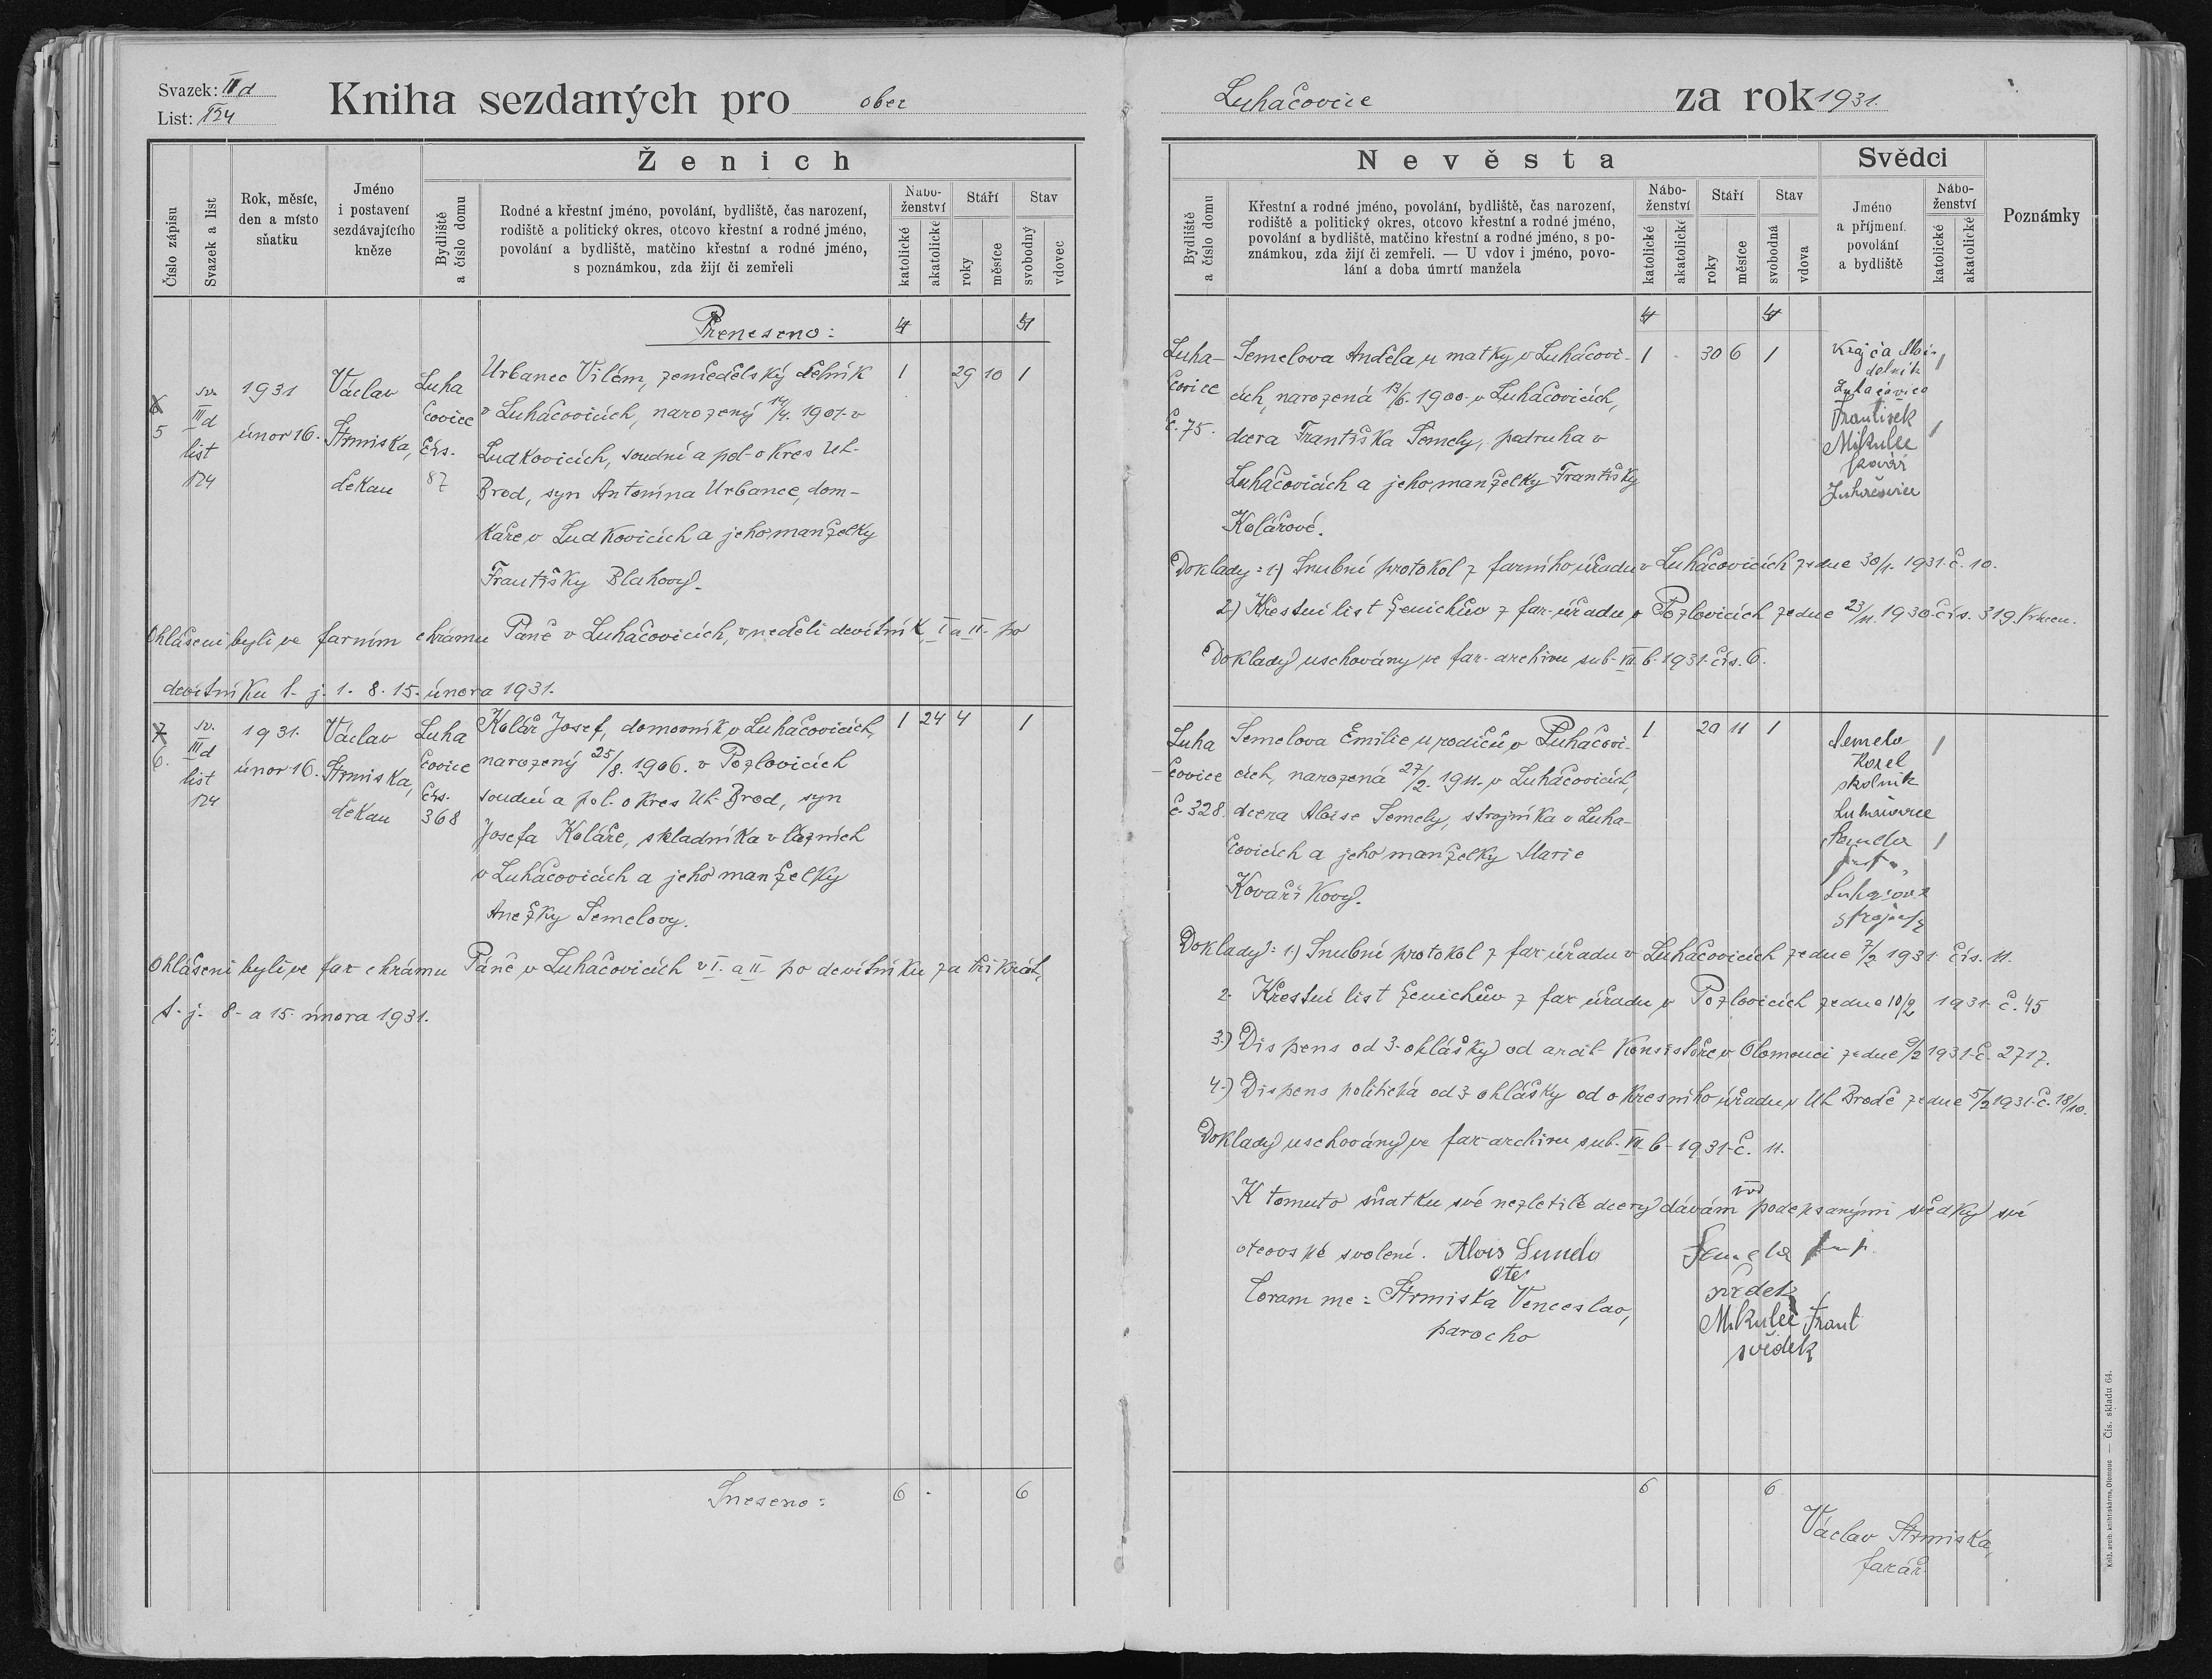 Svazek: III d
List: 124
Kniha sezdaných pro obec
Číslo zápisu
Svazek a list
Rok, měsíc,
den a místo
sňatku
Jméno
i postavení
sezdávajícího
kněze
Ženich
Bydliště
a číslo domu
Rodné a křestní jméno, povolání, bydliště, čas narození,
rodiště a politický okres, otcovo křestní a rodné jméno,
povolání a bydliště, matčino křestní a rodné jméno,
s poznámkou, zda žijí či zemřeli
Nábo-
ženství
katolické
akatolické
Stáří
roky
měsíce
Stav
svobodný
vdovec
Přeneseno: 4
5
sv.
III d
list
124
1931
únor 16.
Václav
Štrmiska,
děkan
Luha
čovice
čís.
87
Urbanec Vilém, zemědělský dělník 1 29 10 1
v Luhačovicích, narozený 14/4. 1901. v
Ludkovicích, soudní a pol. okres Uh.
Brod, syn Antonína Urbance, dom-
káře v Ludkovicích a jeho manželky
Františky Blahovy.
Ohlášeni byli ve farním chrámu Páně v Luhačovicích, v neděli devítník, I a II. po
devítníku t. j. 1. 8. 15. února 1931.
7
6.
sv.
III d
list
124
1931.
únor 16.
Václav
Štrmiska,
děkan
Luha
čovice
čís.
368
Kolář Josef, domovník v Luhačovicích, 1 24 4 1
narozený 25/8. 1906. v Pozlovicích
soudní a pol. okres Uh. Brod, syn
Josefa Koláře, skladníka v lázních
v Luhačovicích a jeho manželky
Anežky Semelovy.
Ohlášeni byli ve far. chrámu Páně v Luhačovicích v I. a II. po devítníku za třikrát,
t. j. 8. a 15. února 1931.
Sneseno: 6 - 6
Luhačovice za rok 1931.
Nevěsta
Bydliště
a číslo domu
Křestní a rodné jméno, povolání, bydliště, čas narození,
rodiště a politický okres, otcovo křestní a rodné jméno,
povolání a bydliště, matčino křestní a rodné jméno, s po-
známkou, zda žijí či zemřeli. — U vdov i jméno, povo-
lání a doba úmrtí manžela
Nábo-
ženství
katolické
akatolické
Stáří
roky
měsíce
Stav
svobodná
vdova
Svědci
Jméno
a příjmení
povolání
a bydliště
Nábo-
ženství
katolické
akatolické
Poznámky
4 4
Luha-
čovice
č. 75.
Semelova Anděla u matky v Luhačovi- 1 - 30 6 1
cích, narozená 13/6. 1900. v Luhačovicích,
dcera Františka Semely, podruha v
Luhačovicích a jeho manželky Františky
Kolářové.
Krajča
dělník
Luhačovice
František
Mikulec
kovář
Luhačovice
Doklady: 1.) Snubní protokol z farního úřadu v Luhačovicích ze dne 30/1. 1931. č. 10.
2.) Křestní list ženichův z far. úřadu v Pozlovicích ze dne 23/11. 1930. čís. 319
Doklady uschovány ve far. archivu sub. VII. b. 1931. čís. 6.
Luha
-čovice
č. 328.
Semelova Emilie u rodičů v Luhačovi- 1 11 1
cích, narozená 27/2. 1911. v Luhačovicích,
dcera Aloise Semely, strojníka v Luha-
čovicích a jeho manželky Marie
Kovaříkovy.
Semela
Karel
školník
Luhačovice
Semela
Doklady: 1.) Snubní protokol z far. úřadu v Luhačovicích ze dne 7/2 1931. čís. 11.
2. Křestní list ženichův z far. úřadu v Pozlovicích ze dne 10/2 1931. č. 45
3.) Dispens od 3. ohlášky od arcib. Konsistoře v Olomouci ze dne 9/2 1931. č. 2717.
4.) Dispens politická od 3 ohlášky od okresního úřadu v Uh. Brodě ze dne 5/2 1931. č. 18/10.
Doklady uschovány ve far. archivu sub. VII. b. 1931. č. 11.
K tomuto sňatku své nezletilé dcery dávám podepsanými svědky své
otcovské svolení. Alois Semela
otec
Semela
svědek
Coram me: Štrmiska Venceslao,
parocho
Mikulec Frant
svědek
6 6
Václav Štrmiska,
farář
Kníž. arcib. knihtiskárna, Olomouc — Čís. skladu 64.